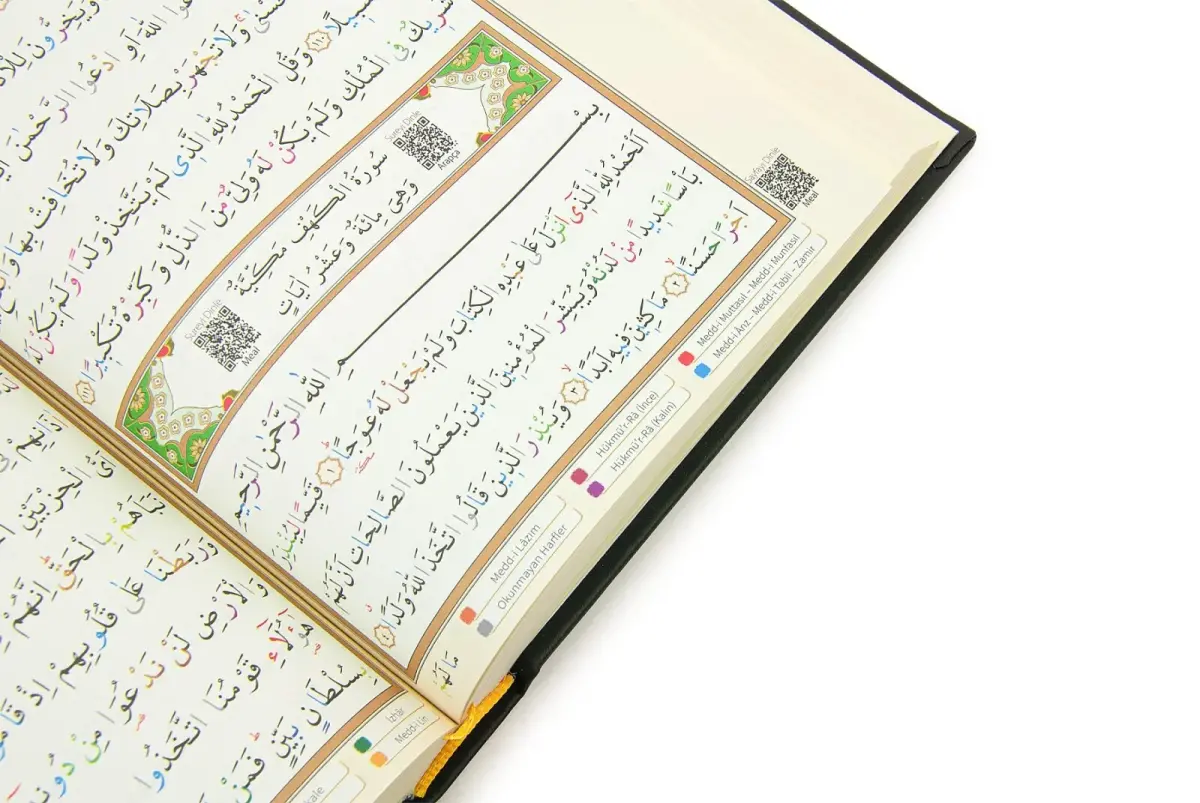 وَيَخِرُّونَ
اللّٰهَ اَوِ ادْعُوا الرَّحْمٰنَ
وَلَا تَجْهَرْ بِصَلَاتِكَ وَلَا تُخَافِتْ بِهَا
سَبٖيلًا ﴿١١٠﴾ وَقُلِ الْحَمْدُ لِلّٰهِ الَّذٖى لَمْ يَتَّخِذْ وَلَدًا وَلَمْ يَكُنْ لَهُ
شَرٖيكٌ فِى الْمُلْكِ وَلَمْ يَكُنْ لَهُ وَلِىٌّ مِنَ الذُّلِّ وَكَبِّرْهُ تَكْبٖيرًا ﴿١١١﴾
Sureyi Dinle
Arapça
سُورَةُ الْكَهْفِ مَكِّيَّةٌ
وَهِىَ مِائَةٌ وَعَشْرُ اٰيَاتٍ
Sureyi Dinle
Meal
بِسْمِ اللّٰهِ الرَّحْمٰنِ الرَّحٖيمِ
اَلْحَمْدُ لِلّٰهِ الَّذٖٓى اَنْزَلَ عَلٰى عَبْدِهِ الْكِتَابَ وَلَمْ يَجْعَلْ لَهُ عِوَجًا ﴿١﴾ قَيِّمًا لِيُنْذِرَ
بَاْسًا شَدٖيدًا مِنْ لَدُنْهُ وَيُبَشِّرَ الْمُؤْمِنٖينَ الَّذٖينَ يَعْمَلُونَ الصَّالِحَاتِ اَنَّ لَهُمْ
اَجْرًا حَسَنًا ﴿٢﴾ مَاكِثٖينَ فٖيهِ اَبَدًا ﴿٣﴾ وَيُنْذِرَ الَّذٖينَ قَالُوا اتَّخَذَ اللّٰهُ وَلَدًا ﴿٤﴾
مَا لَهُمْ
Sayfayı Dinle
Meal
Medd-i Muttasıl – Medd-i Munfasıl
Medd-i Ârız – Medd-i Tabîi – Zamir
Hükmü'r-Râ (İnce)
Hükmü'r-Râ (Kalın)
Medd-i Lâzım
Okunmayan Harfler
الْحِزْبَيْنِ
بِالْحَقِّ اِنَّهُمْ
وَرَبَطْنَا عَلٰى قُلُوبِهِمْ اِذْ
وَالْاَرْضِ لَنْ نَدْعُوَا مِنْ
هٰٓؤُلَٓاءِ قَوْمُنَا اتَّخَذُوا
بِسُلْطَانٍ بَيِّنٍ فَمَنْ
İzhâr
Medd-i Lîn